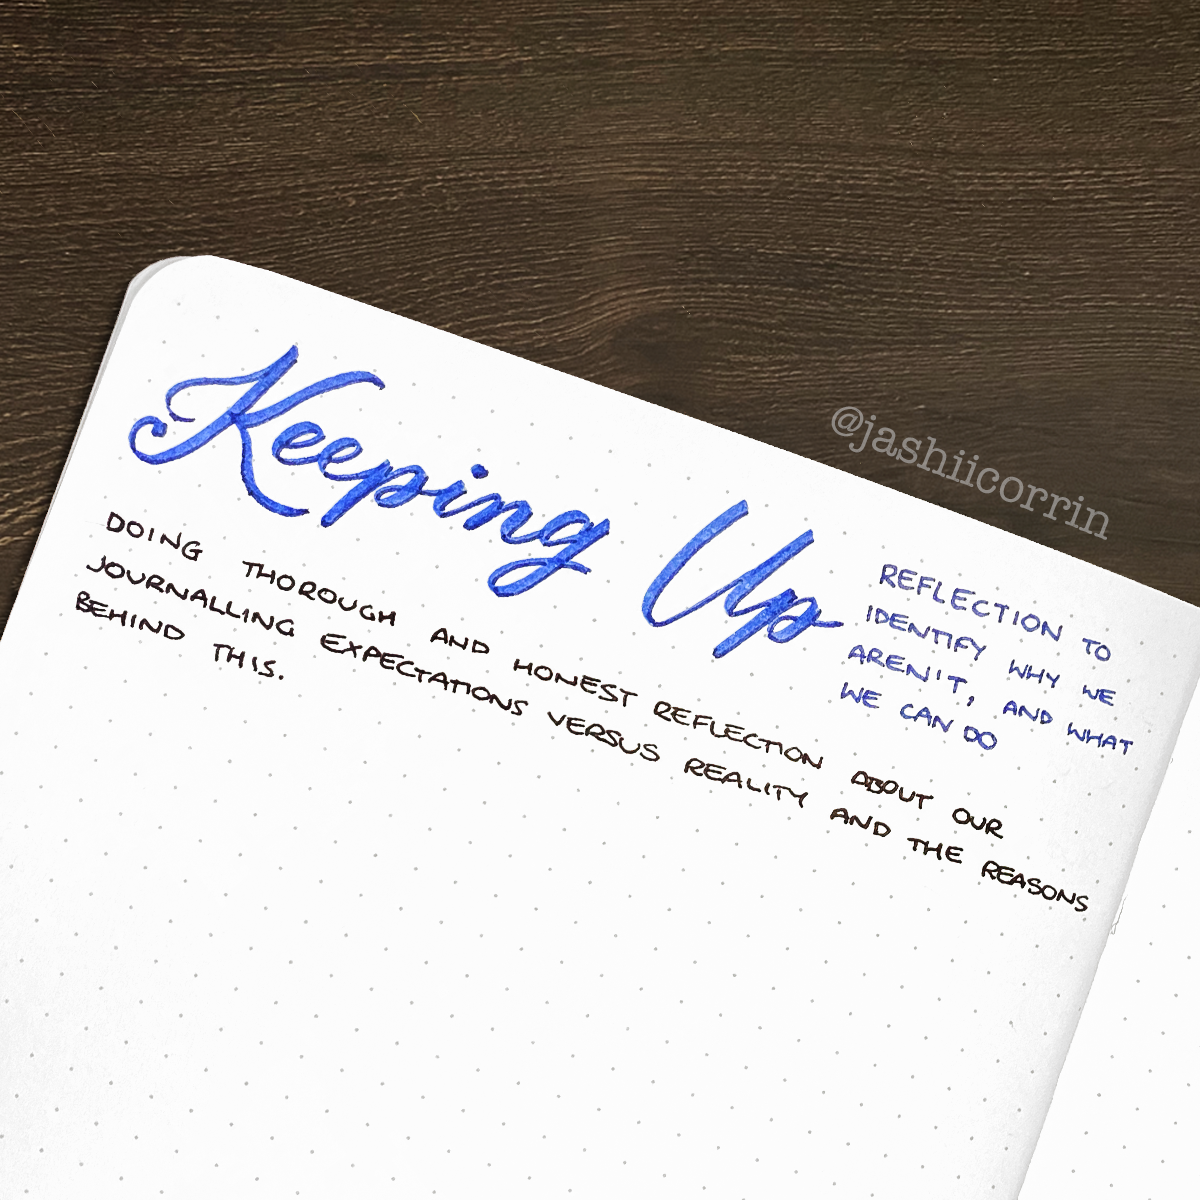 @jashiicorrin
Keeping Up
REFLECTION TO
IDENTIFY WHY WE
AREN'T, AND WHAT
WE CAN DO
DOING THOROUGH AND HONEST REFLECTION ABOUT OUR
JOURNALLING EXPECTATIONS VERSUS REALITY AND THE REASONS
BEHIND THIS.